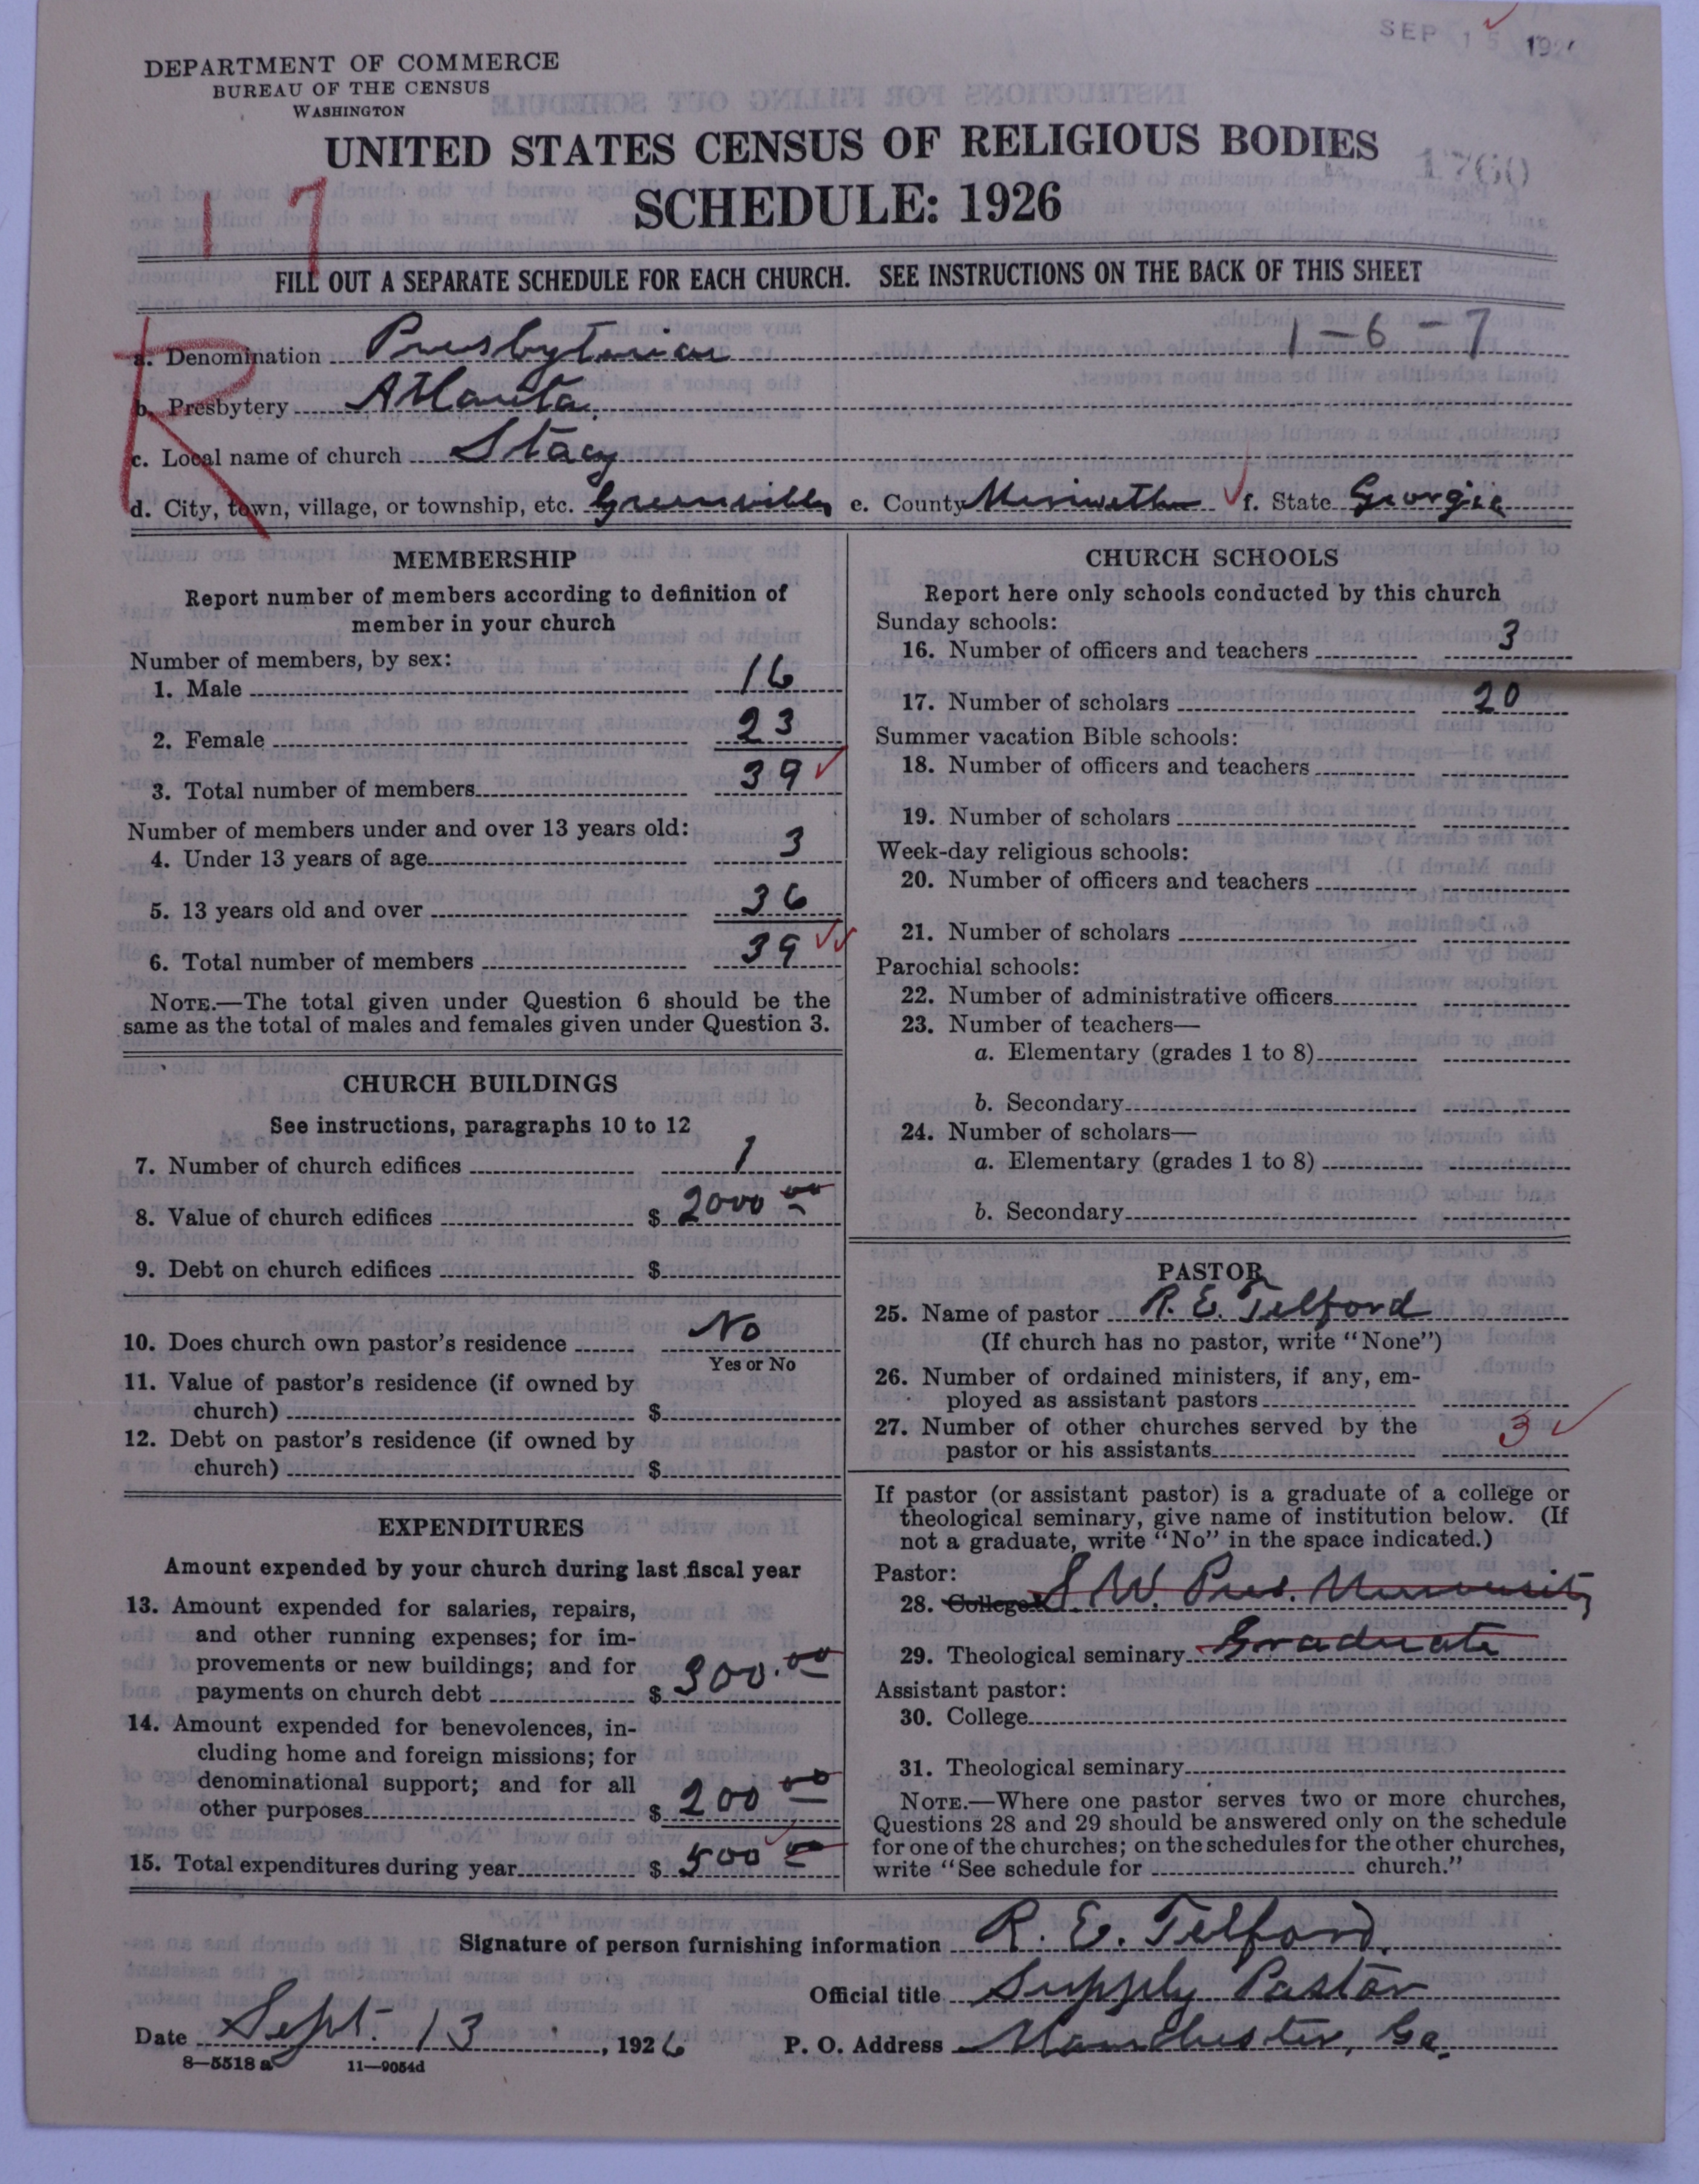 SEP 15 192
DEPARTMENT OF COMMERCE
BUREAU OF THE CENSUS
WASHINGTON
UNITED STATES CENSUS OF RELIGIOUS BODIES
1760
SCHEDULE: 1926
17
FILL OUT A SEPARATE SCHEDULE FOR EACH CHURCH. SEE INSTRUCTIONS ON THE BACK OF THIS SHEET
R
a. Denomination Presbyterian 1-6-7
b. Presbytery Atlanta.
c. Local name of church Stacy
d. City, town, village, or township, etc. Greenville e. County Meriwether f. State Georgia
MEMBERSHIP
Report number of members according to definition of
member in your church
Number of members, by sex:
1. Male 16
2. Female 23
3. Total number of members 39
Number of members under and over 13 years old:
4. Under 13 years of age 3
5. 13 years old and over 36
6. Total number of members 39
NOTE.—The total given under Question 6 should be the
same as the total of males and females given under Question 3.
CHURCH BUILDINGS
See instructions, paragraphs 10 to 12
7. Number of church edifices 1
8. Value of church edifices $ 2000 00
9. Debt on church edifices $
10. Does church own pastor's residence No
Yes or No
11. Value of pastor's residence (if owned by
church) $
12. Debt on pastor's residence (if owned by
church) $
EXPENDITURES
Amount expended by your church during last fiscal year
13. Amount expended for salaries, repairs,
and other running expenses; for im-
provements or new buildings; and for
payments on church debt $ 300.00
14. Amount expended for benevolences, in-
cluding home and foreign missions; for
denominational support; and for all
other purposes $ 200 00
15. Total expenditures during year $ 500 00
CHURCH SCHOOLS
Report here only schools conducted by this church
Sunday schools:
16. Number of officers and teachers 3
17. Number of scholars 20
Summer vacation Bible schools:
18. Number of officers and teachers
19. Number of scholars
Week-day religious schools:
20. Number of officers and teachers
21. Number of scholars
Parochial schools:
22. Number of administrative officers
23. Number of teachers—
a. Elementary (grades 1 to 8)
b. Secondary
24. Number of scholars—
a. Elementary (grades 1 to 8)
b. Secondary
PASTOR
25. Name of pastor R. E. Telford
(If church has no pastor, write "None")
26. Number of ordained ministers, if any, em-
ployed as assistant pastors
27. Number of other churches served by the
pastor or his assistants 3
If pastor (or assistant pastor) is a graduate of a college or
theological seminary, give name of institution below. (If
not a graduate, write "No" in the space indicated.)
Pastor:
28. College S. W. Pres. University
29. Theological seminary Graduate
Assistant pastor:
30. College
31. Theological seminary
NOTE.—Where one pastor serves two or more churches,
Questions 28 and 29 should be answered only on the schedule
for one of the churches; on the schedules for the other churches,
write "See schedule for church."
Signature of person furnishing information R. E. Telford.
Official title Supply Pastor
Date Sept. 13, 1926 P. O. Address Manchester, Ga.
8—5518 a 11—9054d